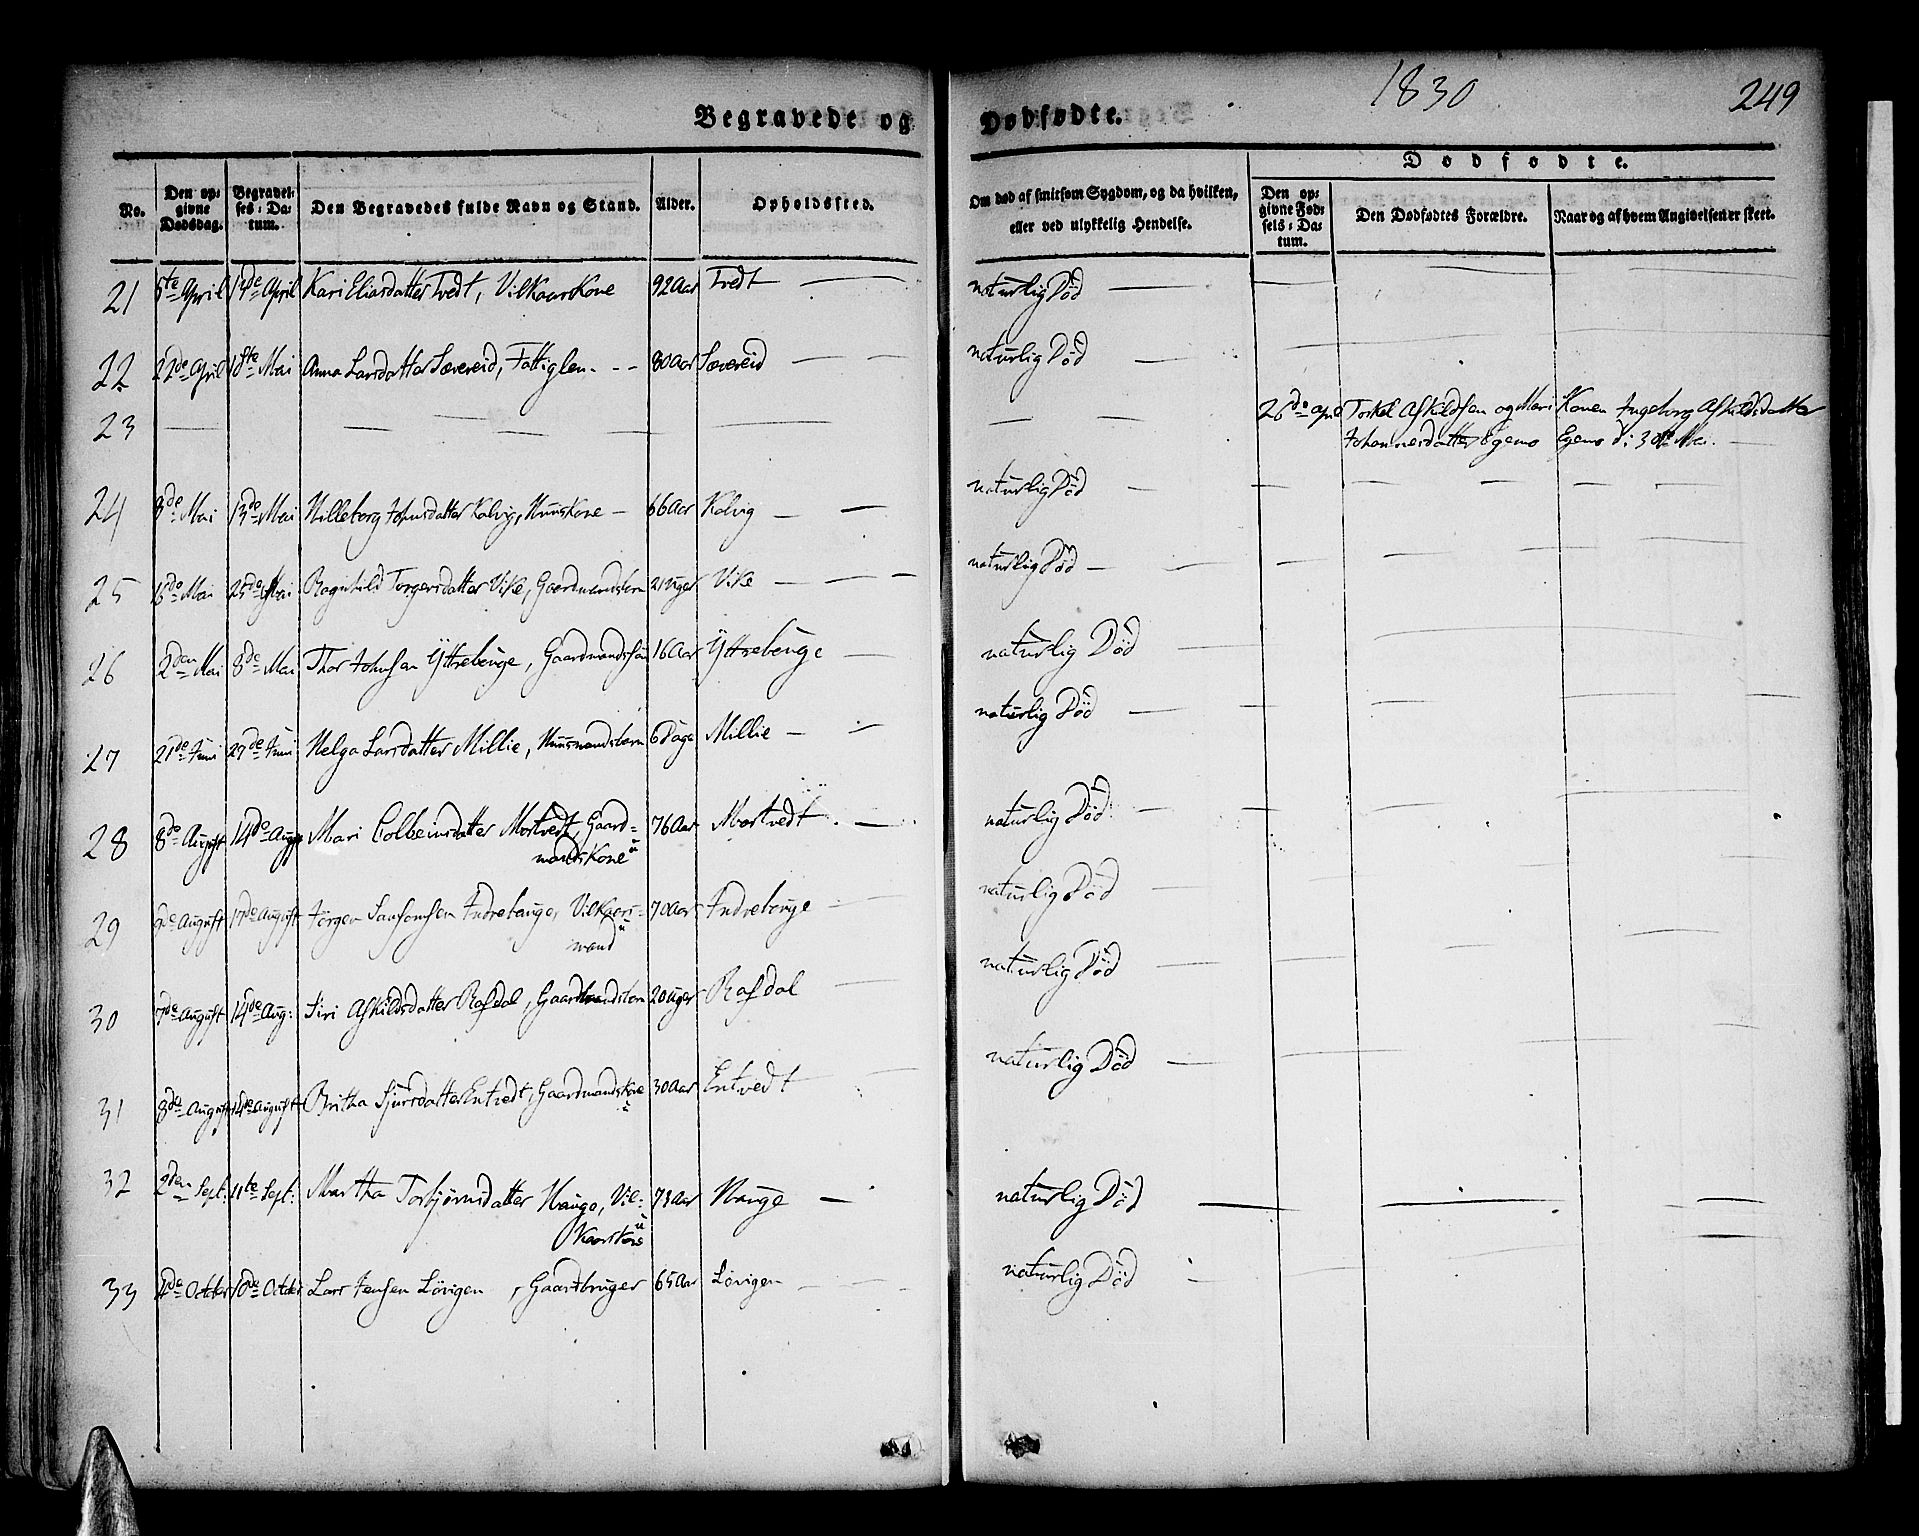 1830
249
Begravede og Dødfødte.
No.
Den opgivne Dødsdag.
Begravelses-Datum.
Den Begravedes fulde Navn og Stand.
Alder.
Opholdssted.
Om død af smitsom Sygdom, og da hvilken, eller ved ulykkelig Hendelse.
Dødfødte.
Den opgivne Fødsels-Datum.
Den Dødfødtes Forældre.
Naar og af hvem Angivelsen er skeet.
21 April 17de April Kari Eliasdatter Tvedt, Vilkaarskone 92 Aar Tvedt — naturlig Död —
22 22de April 18ste Mai Anna Larsdatter Sævereid, Fattiglem - - 80 Aar Sævereid — — naturlig Död —
23 — — — 26de April Torkel Askildsen og Mari Johannesdatter Egemo Konen Ingeborg Askildsdatter Egemo d: 30te Mai.
24 8de Mai 13de Mai Hilleborg Johnsdatter Kalvig, Huuskone — 66 Aar Kalvig — — naturlig Död —
25 16de Mai 25de Mai Ragnhild Torgersdatter Vike, Gaardmandsbarn 21 Uger Vike — — — naturlig Död —
26 2den Mai 8de Mai Thor Johnsen Yttrebøuge, Gaardmandssön 16 Aar Yttrebøuge — naturlig Död —
27 21de Juni 27de Juni Helga Larsdatter Millie, Huusmandsbarn 6 Dage Millie — naturlig Död —
28 8de August 14de Augst Mari Colbeinsdatter Mortvedt, Gaardmandskone 76 Aar Mortvedt — naturlig Död
29 August 17de August Jörgen Samsonsen Indrebøuge, Vilkaarsmand 70 Aar Indrebøuge — naturlig Död —
30 7de August 14de Aug: Siri Askildsdatter Rafdal, Gaardmandsbarn 20 Uger Rafdal — naturlig Död —
31 8de August 14de August Britha Sjursdatter Entvedt, Gaardmandskone 30 Aar Entvedt naturlig Död —
32 2den Sept: 11te Sept: Martha Torbjørnsdatter Hauge, Vilkaarskone 73 Aar Hauge — naturlig Död —
33 4de Octber 10de Octber Lars Jensen Lövigen, Gaardbruger 65 Aar Lövigen — naturlig Död —